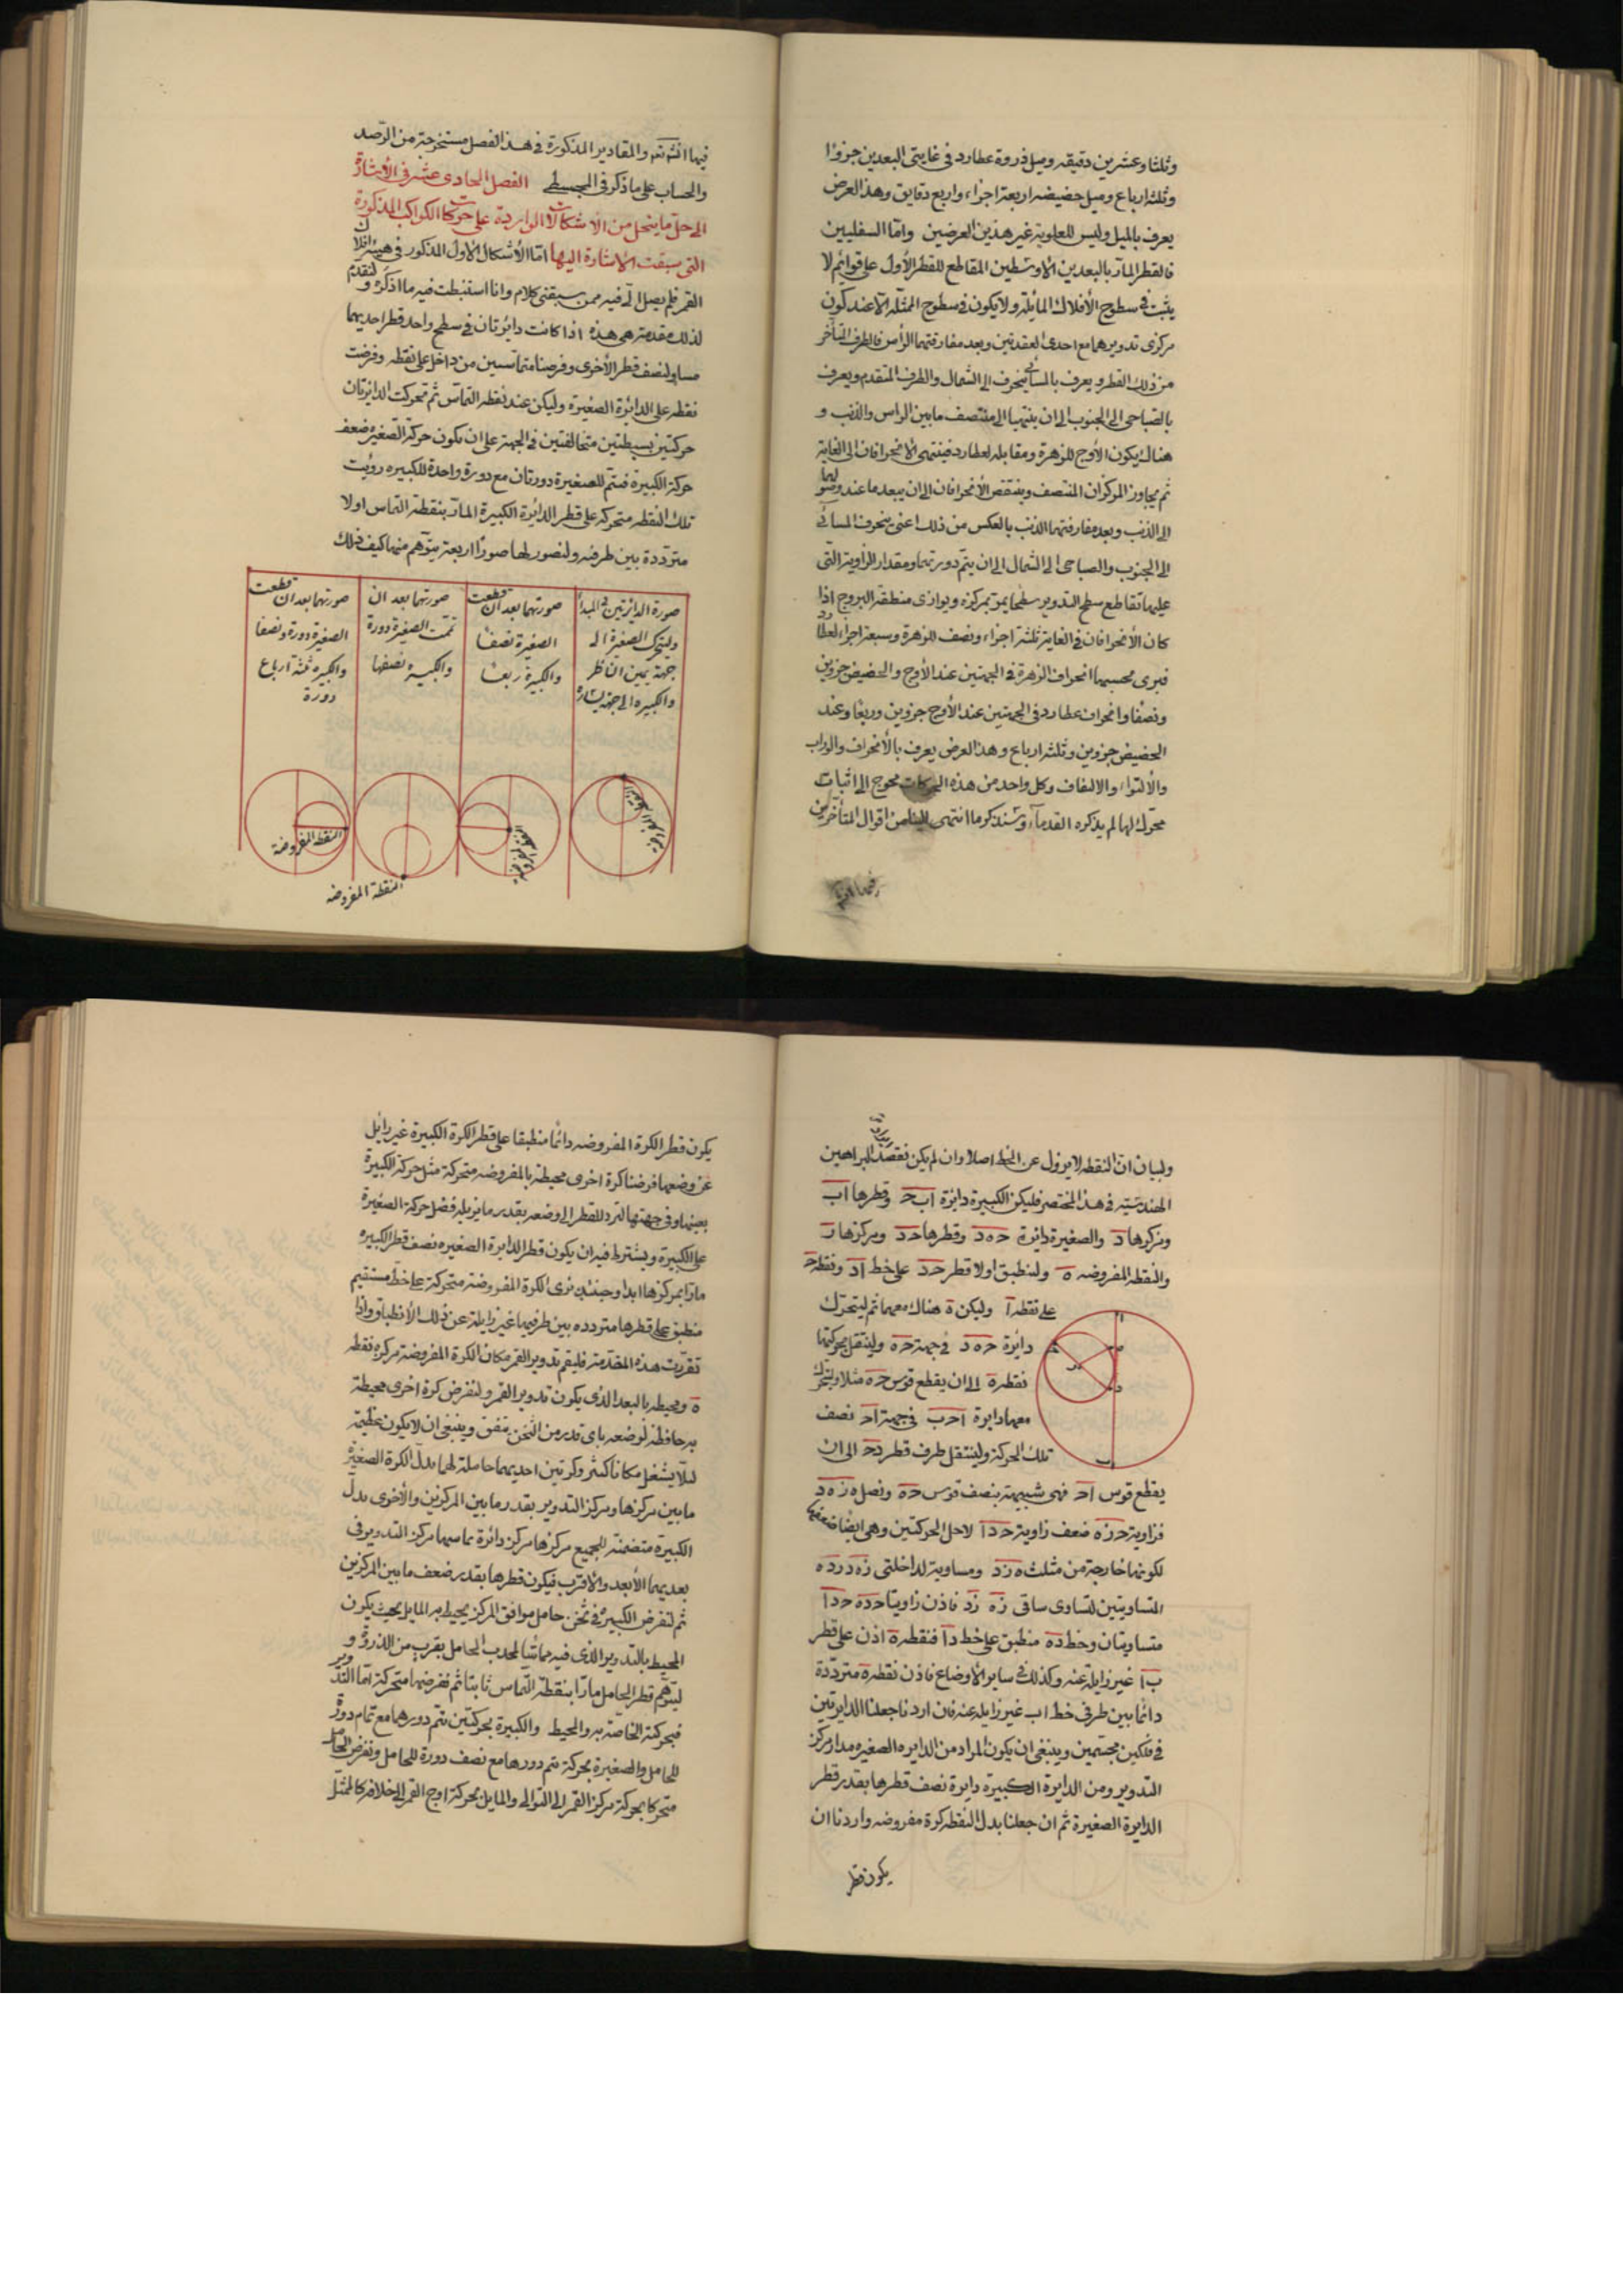 وثلثا وعشرين دقيقه وميل ذروة عطارد فى غايتى البعدين جزوا
وثلثه ارباع وميل حضيضه اربعة اجزاء واربع دقايق وهذا العرض
يعرف بالميل وليس للعلوية غير هذين العرضين واما السفليين
فالقطر المار بالبعدين الاوسطين المقاطع للقطر الأول على قوائم لا
يثبت فى سطوح الأفلاك المائلة ولا يكون فى سطوح الممثله الا عند كون
مركزى تدويرهما مع احدى العقدتين وبعد مفارقتهما الرأس فالطرف المتأخر
من ذلك القطر ويعرف بالمسائى ينحرف الى الشمال والطرف المتقدم ويعرف
بالصباحى الى الجنوب الى ان ينتهيا الى منتصف ما بين الراس والذنب و
هناك يكون الأوج للزهرة ومقابله لعطارد فينتهى الانحرافان الى الغاية
ثم يجاوز المركزان المنتصف وينتقص الأنحرافان الى ان يبعدما عند وصولهما
الى الذنب وبعد مفارقتهما الذنب بالعكس من ذلك اعنى ينحرف المسائى
الى الجنوب والصباحى الى الشمال الى ان يتم دورتهما ومقدار الزاوية التى
عليها تقاطع سطح التدوير سطحا يمر بمركزه ويوازى منطقة البروج اذا
كان الأنحرافان فى الغاية ثلثة اجزاء ونصف للزهرة وسبعة اجزاء لعطارد
فيرى بحسبهما انحراف الزهرة فى الجهتين عند الأوج والحضيض جزوين
ونصفا وانحراف عطارد فى الجهتين عند الأوج جزوين وربعا وعند
الحضيض جزوين وثلثه ارباع وهذا العرض يعرف بالأنحراف والوراب
والألتواء والالتفاف وكل واحد من هذه الحركات محوج الى اثبات
محرك لها لم يذكره القدماء وسنذكر ما انتهى الينا من اقوال المتأخرين
فيها انشاءالله
فيها انشاءالله تعه والمقادير المذكورة فى هذا الفصل مستخرجة من الرصد
والحساب على ما ذكر فى المجسطى الفصل الحادى عشر فى الأشارة
الى حل ما ينحل من الاشكالات الواردة على حركات الكواكب المذكورة
التى سبقت الاشارة اليها اما الأشكال الاول المذكور فى هيئة افلاك
القمر فلم يصل الى فيه ممن سبقنى كلام وانا استنبطت فيه ما اذكره ولنقدم
لذلك مقدمة هى هذه اذا كانت دايرتان فى سطح واحد قطر احديهما
مساو لنصف قطر الأخرى وفرضنا متماسين من داخل على نقطه وفرضت
نقطه على الدائرة الصغيرة وليكن عند نقطه التماس ثم تحركت الدائرتان
حركتين بسيطتين متخالفتين فى الجهة على ان يكون حركة الصغيره ضعف
حركة الكبيرة فيتم للصغيرة دورتان مع دورة واحدة للكبيره رويت
تلك النقطه متحركه على قطر الدائرة الكبيرة المار بنقطة التماس اولا
مترددة بين طرفيه ولنصور لها صورا اربعة يتوهم منها كيف ذلك
صورة الدائرتين فى المبدأ
وليتحرك الصغيرة الى
جهة يمين الناظر
والكبيره الى جهة يساره
صورتهما بعد ان قطعت
الصغيرة نصفا
والكبيرة ربعا
صورتهما بعد ان
تمت الصغيرة دورة
والكبيره نصفها
صورتهما بعد ان قطعت
الصغيرة دورة ونصفا
والكبيره ثلثة ارباع
دورة
النقطة المفروضة
النقطة المفروضه
النقطة المفروضه
النقطه المفروضة
ولبيان ان النقطه لا يزول عن الخط اصلا وان لم يكن نقصد ايراد البراهين
الهندسيّه فى هذا المختصر فليكن الكبيرة دائرة اب ح وقطرها اب
ومركزها د والصغيرة دائرة ح ه د وقطرها ح د ومركزها ز
والنقطه المفروضه ه ولنطبق اولا قطر ح د على خط ا د ونقطه ح
على نقطه ا وليكن ه هناك معهما ثم ليتحرك
دائرة ح ه د فى جهة ح ه ولينتقل بحركتها
نقطة ه الى ان يقطع قوس ح ه مثلا وليتحرك
معها دايرة ا ح ب فى جهة ا ح نصف
تلك الحركة ولينتقل طرف قطر د ح الى ان
يقطع قوس ا ح فهى شبيهة بنصف قوس ح ه ونصل ه ز ه د
فزاوية ح ز ه ضعف زاوية ح د ا لاجل الحركتين وهى ايضا ضعفها
لكونها خارجة من مثلث ه ز د ومساوية لداخلتى ز ه د ز د ه
المتساويتين لتساوى ساقى ز ه ز د فاذن زاويتا ح د ه ح د ا
متساويتان وخط د ه منطبق على خط د ا فنقطة ه اذن على قطر
ب ا غير زايلة عنه وكذلك فى ساير الاوضاع فاذن نقطة ه مترددة
دائما بين طرفى خط ا ب غير زايله عنه فان اردنا جعلنا الدايرتين
فى فلكين مجسمين وينبغى ان يكون المراد من الدايره الصغيره مدار مركز
التدوير ومن الدايرة الكبيرة دايرة نصف قطرها بقدر قطر
الدايرة الصغيرة ثم ان جعلنا بدل النقطه كرة مفروضه واردنا ان
يكون قطر
يكون قطر الكرة المفروضه دائما منطبقا على قطر الكرة الكبيرة غير زايل
عن وضعها فرضنا كرة اخرى محيطة بالمفروضه متحركة مثل حركة الكبيرة
بعينها وفى جهتها لترد القطر الى وضعه بقدر ما يزيله فضل حركة الصغيرة
على الكبيرة ويشترط فيه ان يكون قطر الدايرة الصغيره نصف قطر الكبيره
مارا بمركزها ابدا وحينئذ نرى الكرة المفروضة متحركة على خط مستقيم
منطبق على قطرها متردده بين طرفيها غير زايلة عن ذلك الأنطباق واذا
تقررت هذه المقدمة فليقم تدوير القمر مكان الكرة المفروضة مركزه نقطه
ه ومحيطه بالبعد الذى يكون تدوير القمر ولنفرض كرة اخرى محيطة
به حافظة لوضعه باى قدر من الثخن يتفق وينبغى ان لا يكون عظيمة
لئلا يشغل مكانا كثيرا وكرتين احديهما حاملة لهما بدل الكرة الصغيرة
ما بين مركزها ومركز التدوير بقدر ما بين المركزين والأخرى بدل
الكبيرة متضمنة للجميع مركزها مركز دائرة تماسها مركز التدوير فى
بعديهما الأبعد والاقرب فيكون قطرها بقدر ضعف ما بين المركزين
ثم لنفرض الكبيرة فى ثخن حامل موافق المركز يحيط به المايل بحيث يكون
المحيط بالتدوير الذى فيه مماسا لمحدب الحامل بقرب من الذروة و
ليتوهم قطر الحامل مارا بنقطة التماس ثابتا ثم نفرضها متحركة اما التدوير
فبحركته الخاصة به والمحيط والكبيرة بحركتين يتم دورهما مع تمام دورة
للحامل والصغيرة بحركة يتم دورها مع نصف دورة للحامل ونفرض الحامل
متحركا بحركة مركز القمر الى التوالى والمايل بحركة اوج القمر الى خلافه كالممثل